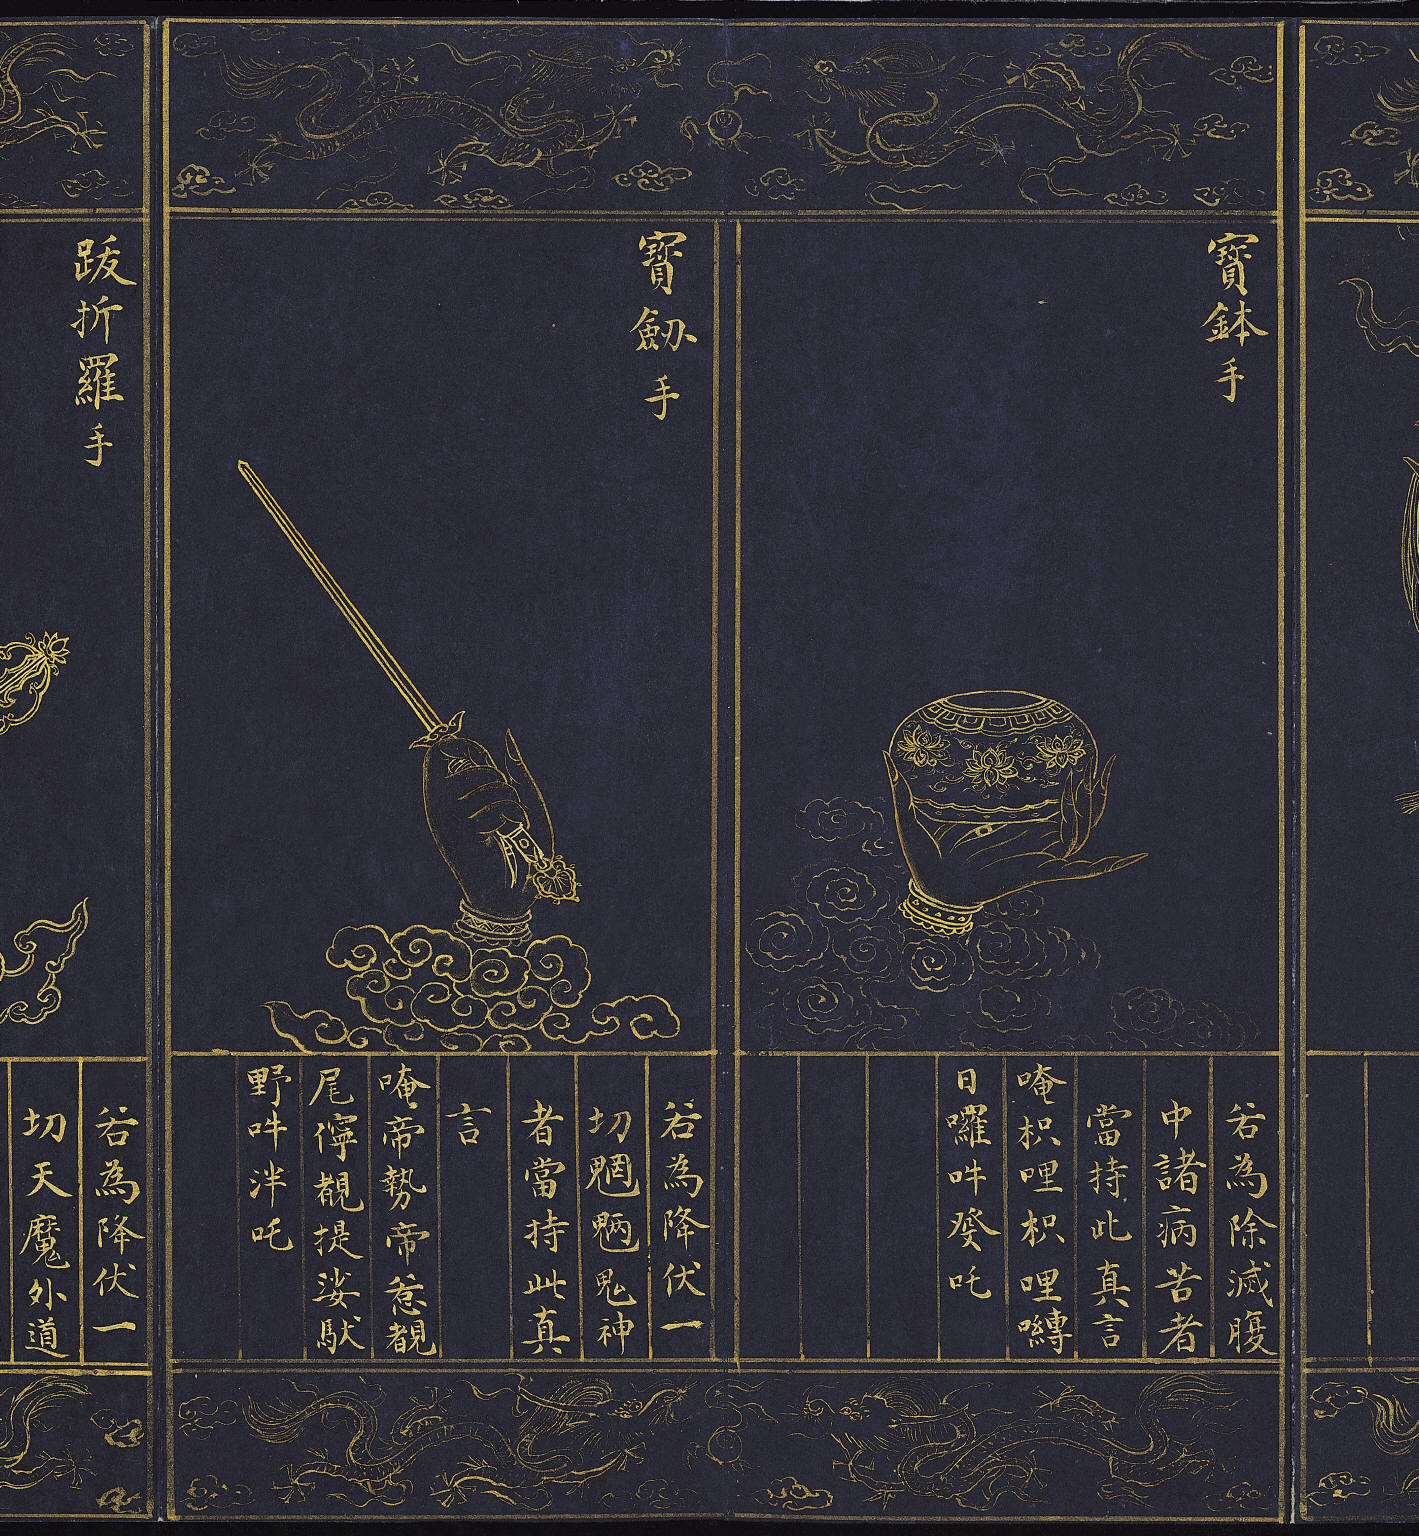 寳鉢手
若為除滅腹
中諸病苦者
當持此真言
唵枳哩枳哩嚩
日囉吽癹吒
寳劔手
若為降伏一
切魍魎鬼神
者當持此真
言
唵帝勢帝惹覩
尾儜覩提娑馱
野吽泮吒
跋折羅手
若為降伏一
切天魔外道